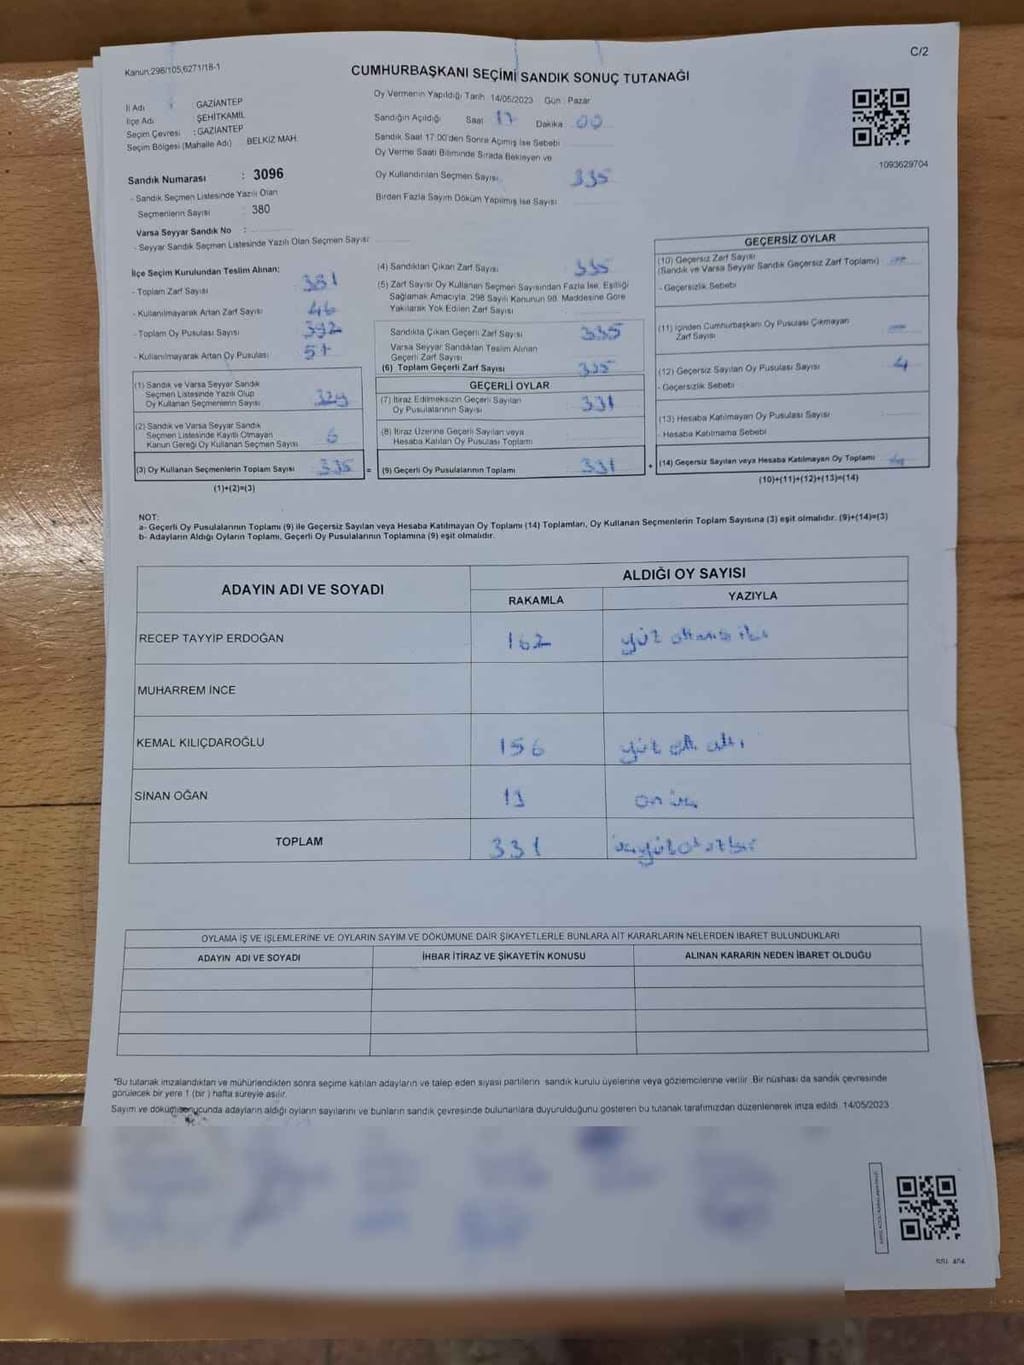 C/2
Kanun:298/105,6271/18-1
CUMHURBAŞKANI SEÇİMİ SANDIK SONUÇ TUTANAĞI
İl Adı : GAZİANTEP
İlçe Adı ŞEHİTKAMİL
Seçim Çevresi : GAZİANTEP
Seçim Bölgesi (Mahalle Adı) BELKIZ MAH.
Sandık Numarası : 3096
- Sandık Seçmen Listesinde Yazılı Olan
Seçmenlerin Sayısı 380
Varsa Seyyar Sandık No :
- Seyyar Sandık Seçmen Listesinde Yazılı Olan Seçmen Sayısı
Oy Vermenin Yapıldığı Tarih 14/05/2023 Gün : Pazar
Sandığın Açıldığı Saat 17 Dakika 00
Sandık Saat 17:00'den Sonra Açılmış İse Sebebi
Oy Verme Saati Bitiminde Sırada Bekleyen ve
Oy Kullandırılan Seçmen Sayısı 335
Birden Fazla Sayım Döküm Yapılmış İse Sayısı
1093629704
İlçe Seçim Kurulundan Teslim Alınan:
- Toplam Zarf Sayısı 381
- Kullanılmayarak Artan Zarf Sayısı 46
- Toplam Oy Pusulası Sayısı 392
- Kullanılmayarak Artan Oy Pusulası 57
(1) Sandık ve Varsa Seyyar Sandık
Seçmen Listesinde Yazılı Olup
Oy Kullanan Seçmenlerin Sayısı 329
(2) Sandık ve Varsa Seyyar Sandık
Seçmen Listesinde Kayıtlı Olmayan
Kanun Gereği Oy Kullanan Seçmen Sayısı 6
(3) Oy Kullanan Seçmenlerin Toplam Sayısı 335 =
(1)+(2)=(3)
(4) Sandıktan Çıkan Zarf Sayısı 335
(5) Zarf Sayısı Oy Kullanan Seçmen Sayısından Fazla İse, Eşitliği
Sağlamak Amacıyla, 298 Sayılı Kanunun 98. Maddesine Göre
Yakılarak Yok Edilen Zarf Sayısı
Sandıkta Çıkan Geçerli Zarf Sayısı 335
Varsa Seyyar Sandıktan Teslim Alınan
Geçerli Zarf Sayısı
(6) Toplam Geçerli Zarf Sayısı 335
GEÇERLİ OYLAR
(7) İtiraz Edilmeksizin Geçerli Sayılan
Oy Pusulalarının Sayısı 331
(8) İtiraz Üzerine Geçerli Sayılan veya
Hesaba Katılan Oy Pusulası Toplamı
(9) Geçerli Oy Pusulalarının Toplamı 331 +
GEÇERSİZ OYLAR
(10) Geçersiz Zarf Sayısı
(Sandık ve Varsa Seyyar Sandık Geçersiz Zarf Toplamı)
- Geçersizlik Sebebi
(11) İçinden Cumhurbaşkanı Oy Pusulası Çıkmayan
Zarf Sayısı
(12) Geçersiz Sayılan Oy Pusulası Sayısı 4
- Geçersizlik Sebebi
(13) Hesaba Katılmayan Oy Pusulası Sayısı
- Hesaba Katılmama Sebebi
(14) Geçersiz Sayılan veya Hesaba Katılmayan Oy Toplamı 4
(10)+(11)+(12)+(13)=(14)
NOT:
a- Geçerli Oy Pusulalarının Toplamı (9) ile Geçersiz Sayılan veya Hesaba Katılmayan Oy Toplamı (14) Toplamları, Oy Kullanan Seçmenlerin Toplam Sayısına (3) eşit olmalıdır. (9)+(14)=(3)
b- Adayların Aldığı Oyların Toplamı, Geçerli Oy Pusulalarının Toplamına (9) eşit olmalıdır.
ADAYIN ADI VE SOYADI ALDIĞI OY SAYISI
RAKAMLA YAZIYLA
RECEP TAYYİP ERDOĞAN 162 yüz altmış iki
MUHARREM İNCE
KEMAL KILIÇDAROĞLU 156 yüz elli altı
SİNAN OĞAN 13 on üç
TOPLAM 331 üçyüzotuzbir
OYLAMA İŞ VE İŞLEMLERİNE VE OYLARIN SAYIM VE DÖKÜMÜNE DAİR ŞİKAYETLERLE BUNLARA AİT KARARLARIN NELERDEN İBARET BULUNDUKLARI
ADAYIN ADI VE SOYADI İHBAR İTİRAZ VE ŞİKAYETİN KONUSU ALINAN KARARIN NEDEN İBARET OLDUĞU
*Bu tutanak imzalandıktan ve mühürlendikten sonra seçime katılan adayların ve talep eden siyasi partilerin sandık kurulu üyelerine veya gözlemcilerine verilir. Bir nüshası da sandık çevresinde
görülecek bir yere 1 (bir ) hafta süreyle asılır.
Sayım ve döküm sonucunda adayların aldığı oyların sayılarını ve bunların sandık çevresinde bulunanlara duyurulduğunu gösteren bu tutanak tarafımızdan düzenlenerek imza edildi. 14/05/2023